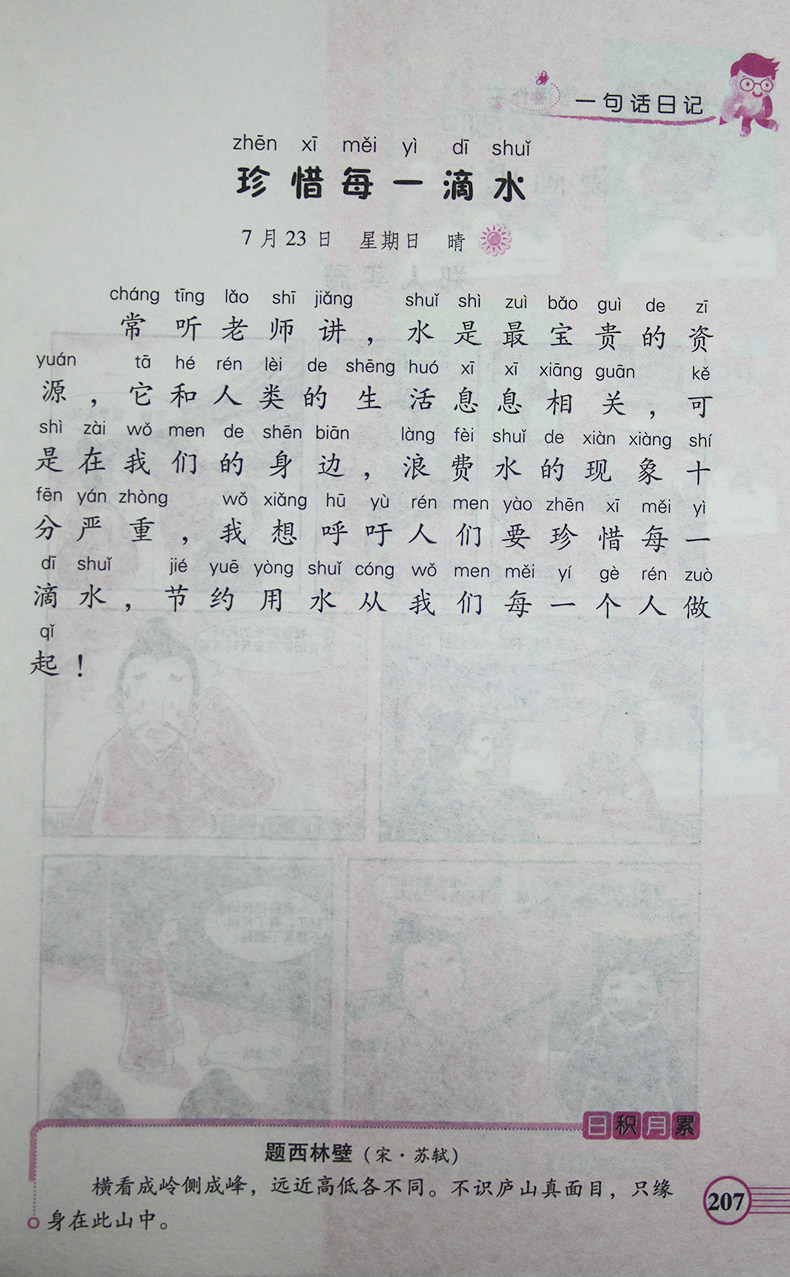 一句话日记
zhēn xī měi yì dī shuǐ
珍惜每一滴水
7月23日 星期日 晴
cháng tīng lǎo shī jiǎng shuǐ shì zuì bǎo guì de zī
常听老师讲，水是最宝贵的资
yuán tā hé rén lèi de shēng huó xī xī xiāng guān kě
源，它和人类的生活息息相关，可
shì zài wǒ men de shēn biān làng fèi shuǐ de xiàn xiàng shí
是在我们的身边，浪费水的现象十
fēn yán zhòng wǒ xiǎng hū yù rén men yào zhēn xī měi yì
分严重，我想呼吁人们要珍惜每一
dī shuǐ jié yuē yòng shuǐ cóng wǒ men měi yí gè rén zuò
滴水，节约用水从我们每一个人做
qǐ
起！
日积月累
题西林壁（宋·苏轼）
横看成岭侧成峰，远近高低各不同。不识庐山真面目，只缘
身在此山中。
207